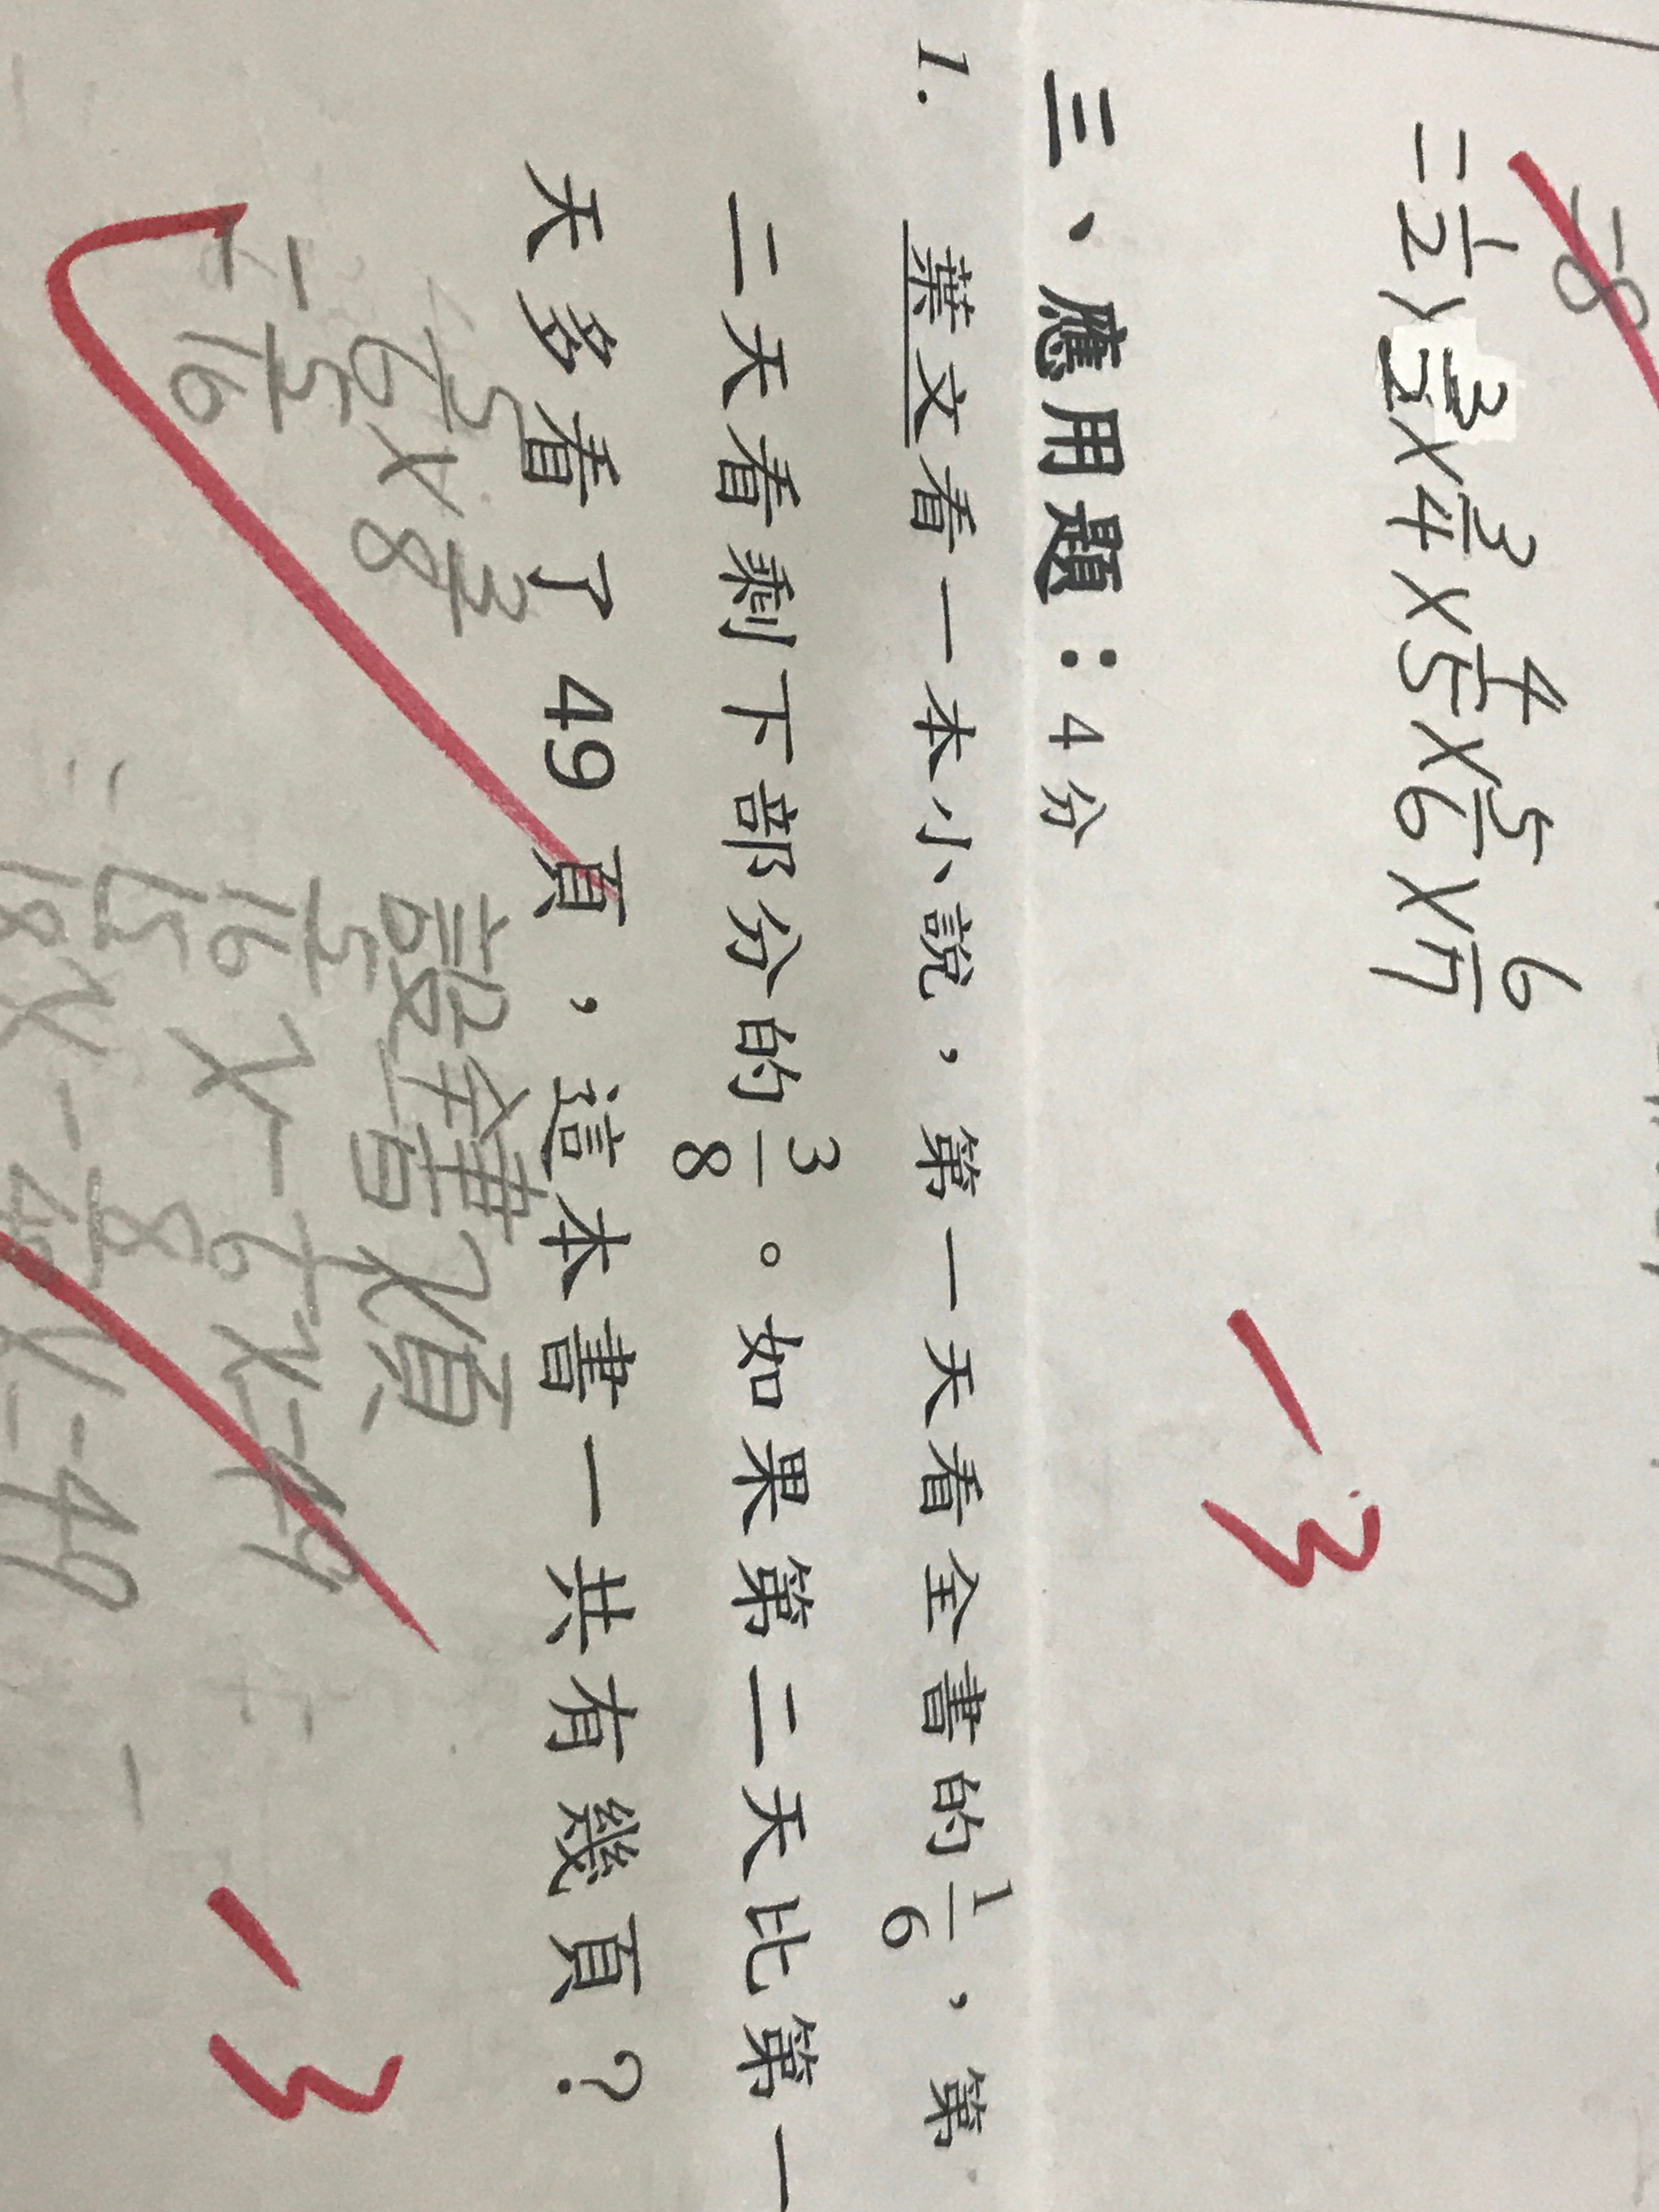 -8
=1/2×2/3×3/4×4/5×5/6×6/7
-3
三、應用題：4分
1. 葉文看一本小說，第一天看全書的1/6，第
二天看剩下部分的3/8。如果第二天比第一
天多看了49頁，這本書一共有幾頁？
5/6×3/8
=5/16
設全書x頁
5/16x-1/6x=49
-3